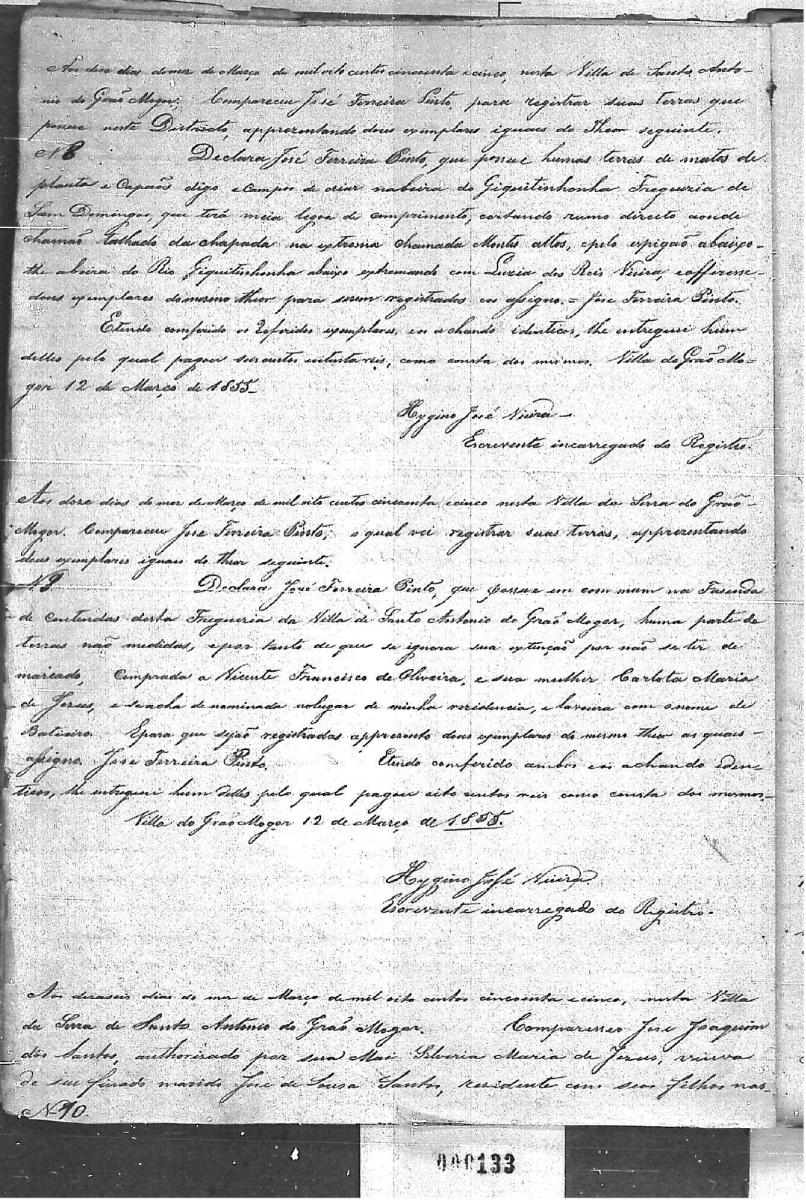 Aos doze dias do mez de Março de mil oito centos cincoenta e cinco, nesta Villa de Santo Anto-
nio do Graõ Mogor; Compareceu José Ferreira Pinto, para registrar suas terras que
possue neste Districto, apprezentando dous exemplares iguais do Theor seguinte.
N 8 Declara José Ferreira Pinto, que possue humas terras de matos de
planta e Capoẽs digo e Campos de criar na beira do Giquitinhonha Freguezia de
Sam Domingos, que terá meia legoa de comprimento, cortando rumo directo aonde
chamaõ talhado da chapada na extrema chamada Montes altos, e pelo espigão abaixo
the abeira do Rio Giquitinhonha abaixo extremando com Luzia dos Reis Vieira, e offeresse
dous exemplares do mesmo theor para serem registrados eos assigno. = José Ferreira Pinto.
E tendo comferido os referidos exemplares, eos achando identicos, lhe entreguei hum
delles pelo qual pagou seis centos reis, como consta dos mesmos. Villa do Graõ Mo-
gor 12 de Março de 1855_
Hygino José Vieira
Escrevente incarregado do Registro.
Aos doze dias do mez de Março de mil oito centos cincoenta e cinco nesta Villa da Serra do Graõ
Mogor. Compareceu Jose Ferreira Pinto, o qual vei registrar suas terras, apprezentando
dous exemplares iguais do theor seguinte.
N 9 Declara José Ferreira Pinto, que possue em commum na Fasenda
de contendas desta Freguezia da Villa de Santo Antonio do Graõ Mogor, huma parte de
terras naõ medidas, e por tanto de que se ignora sua extenção por não se ter de
marcado, Comprada a Vicente Francisco de Oliveira, e sua mulher Carlota Maria
de Jezus, e se acha denominada no lugar de minha rezidencia, e lavoura com o nome de
Batieiro. E para que sejão registradas apprezento dous exemplares do mesmo theor as quais
assigno. José Ferreira Pinto. E tendo comferido ambos eos achando iden-
ticos, lhe entreguei hum delles pelo qual pagou oito centos reis como consta dos mesmos.
Villa do Graõ Mogor 12 de Março de 1855.
Hygino José Vieira
Escrevente incarregado do Registro.
Aos dezaseis dias do mez de Março de mil oito centos cincoenta e cinco, nesta Villa
da Serra de Santo Antonio do Graõ Mogor. Comparesseo Jose Joaquim
dos Santos, authorizado por sua Mai Silveria Maria de Jezus, viuva
de seu finado marido José de Sousa Santos, rezidente com seos filhos nas
N 10
000133